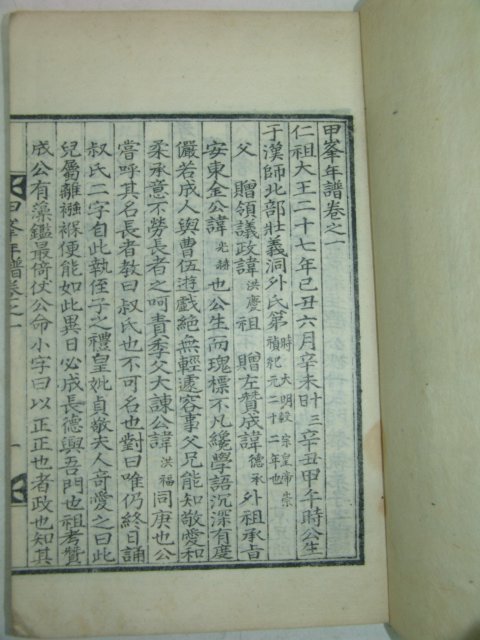 甲峯年譜卷之一
仁祖大王二十七年己丑六月辛未日十三辛丑甲午時公生
于漢師北部壯義洞外氏第時大明毅宗皇帝崇禎紀元二十二年也
父 贈領議政諱洪慶祖 贈左贊成諱德承外祖承旨
安東金公諱光赫也公生而瑰標不凡纔學語沉深有度
儼若成人與曹伍遊戲絶無輕遽容事父兄能知敬愛和
柔承意不勞長者之呵責季父大諫公諱洪福同庚也公
嘗呼其名長者教曰叔氏也不可名也對曰唯仍終日誦
叔氏二字自此執侄子之禮皇妣貞敬夫人奇愛之曰此
兒屬離襁褓便能如此異日必成長德興吾門也祖考贊
成公有藻鑑最倚仗公命小字曰以正正也者政也知其
甲峯年譜卷之一
一